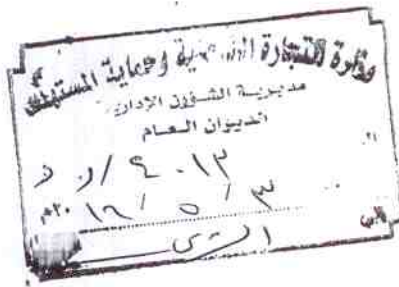 وزارة التجارة الداخلية وحماية المستهلك
مديرية الشؤون الإدارية
الديوان العام
٤٠١٣ / د
٣ / ٥ / ١٦ ٢٠م